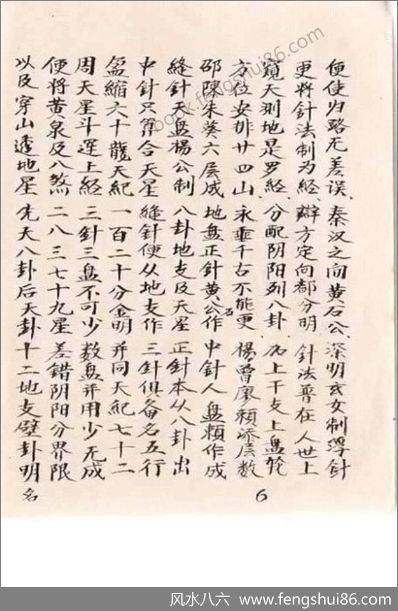 便使归路无差误、秦汉之间黄石公、深明玄女制浮針
更将針法制为經、辯方定向都分明、針法普在人世上
窺天测地是罗經、分配阴阳列八卦、上干支上盘轮
方位安排廿四山、永垂千古不能更、楊曾廖賴添层数
邵陳朱葵六层成 地盘正針黄公作 中針人盘賴作成
缝針天盘楊公制 八卦地支及天星 正針本从八卦出
中針只算合天星 缝針便从地支作 三針俱备名五行
盈缩六十龍天紀 一百二十分金明 并同天紀七十二
周天星斗运上經 三針三盘不可少 数盘并用少无成
便将黄泉及八煞 二八三七十九星 差错阴阳分界限
以及穿山透地星 先天八卦后天卦 十二地支壁卦明 名
6
www.fengshui86.com
风水八六 www.fengshui86.com